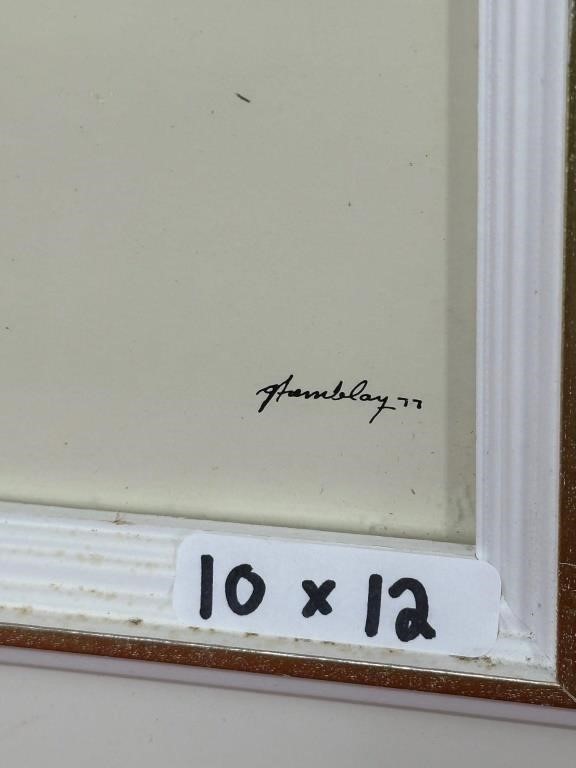 gtremblay 77
10 x 12